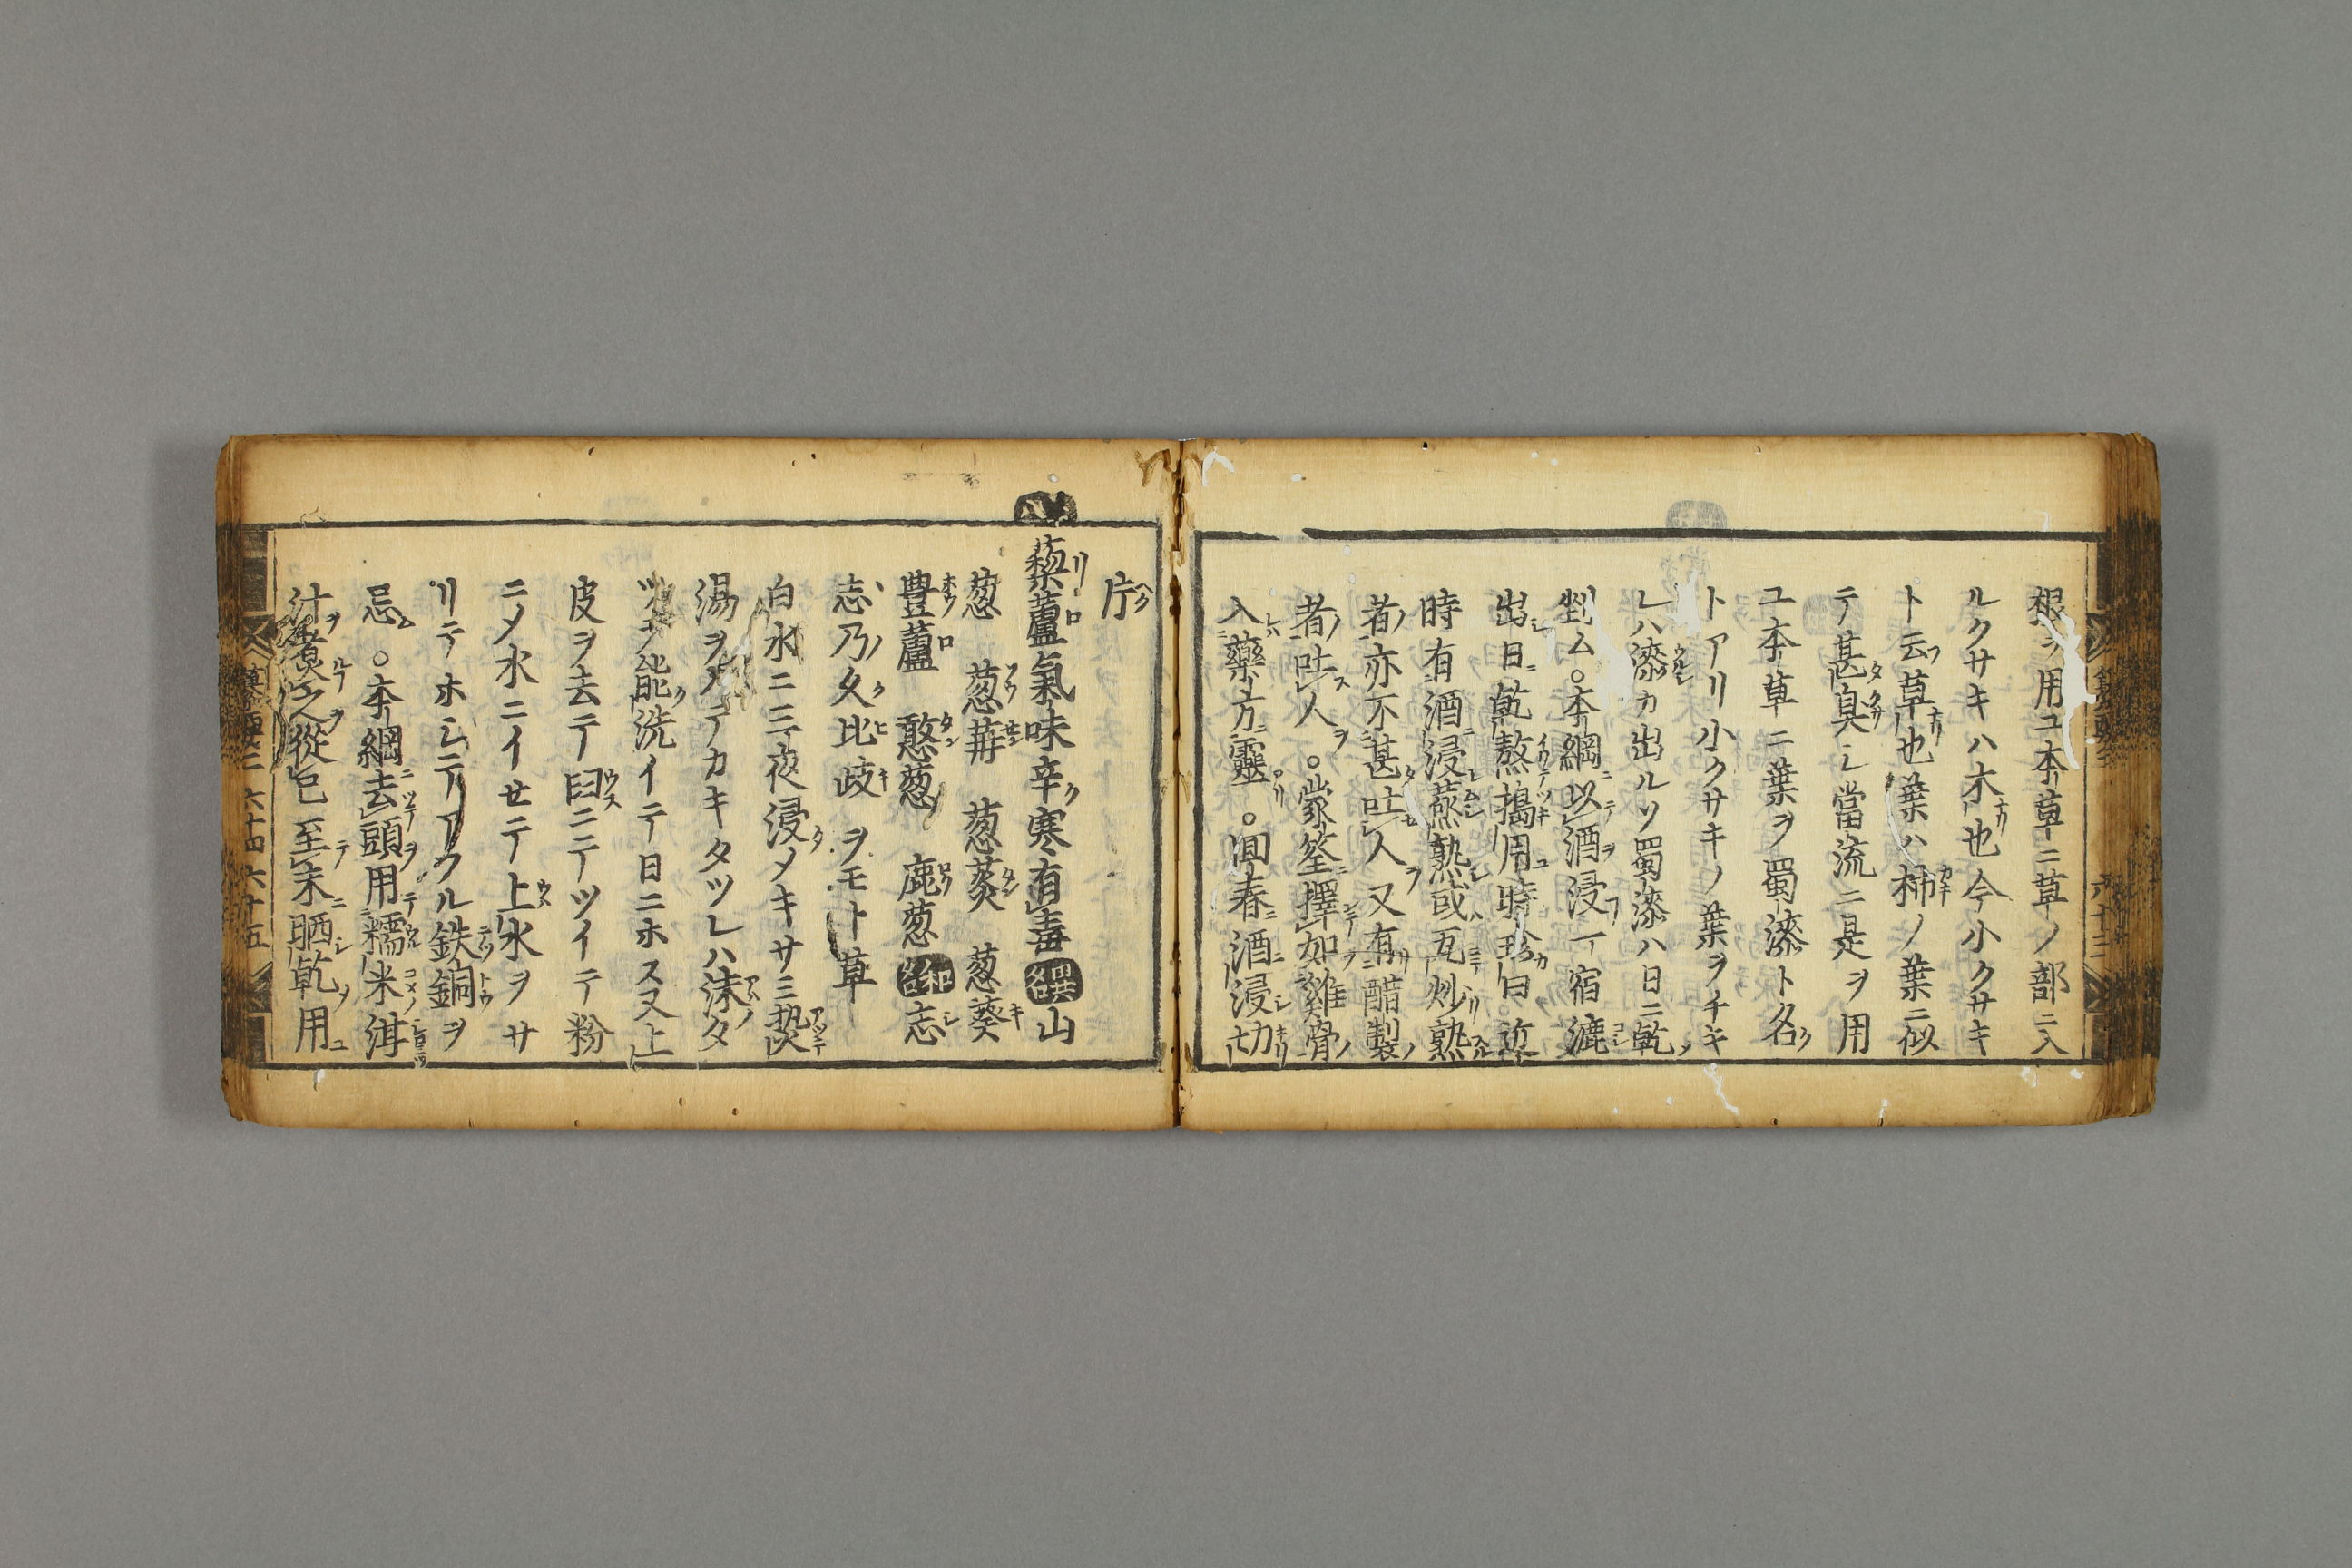 根ヲ用ユ本草ニ草ノ部ニ入
ルクサキハ木也今小クサキ
ト云草也葉ハ柿ノ葉ニ似
テ甚臭シ當流ニ是ヲ用
ユ本草ニ葉ヲ蜀漆ト名
トアリ小クサキノ葉ヲチキ
レハ漆カ出ルソ蜀漆ハ日ニ乾
剉ム○本綱以酒浸一宿漉
出日乾熬搗用時珍曰近
時有酒浸蒸熟或瓦炒熟
者亦不甚吐人又有醋製
者吐人○蒙筌擇如雞骨
入藥方靈○回春酒浸切
片
藜蘆氣味辛寒有毒 異名 山
葱 葱苒 葱菼 葱葵
豊蘆 憨葱 鹿葱 和名 志
志乃久比歧 ヲモト草
白水ニ三夜浸メキサミ熱
湯ヲ テカキタツレハ沫タ
ツ 能洗イテ日ニホス又上
皮ヲ去テ臼ニテツイテ粉
ニメ水ニイセテ上水ヲサ
リテホシテ ル鉄銅ヲ
忌○本綱去頭用糯米泔
汁煮之從巳至未晒乾用
六十四 六十五